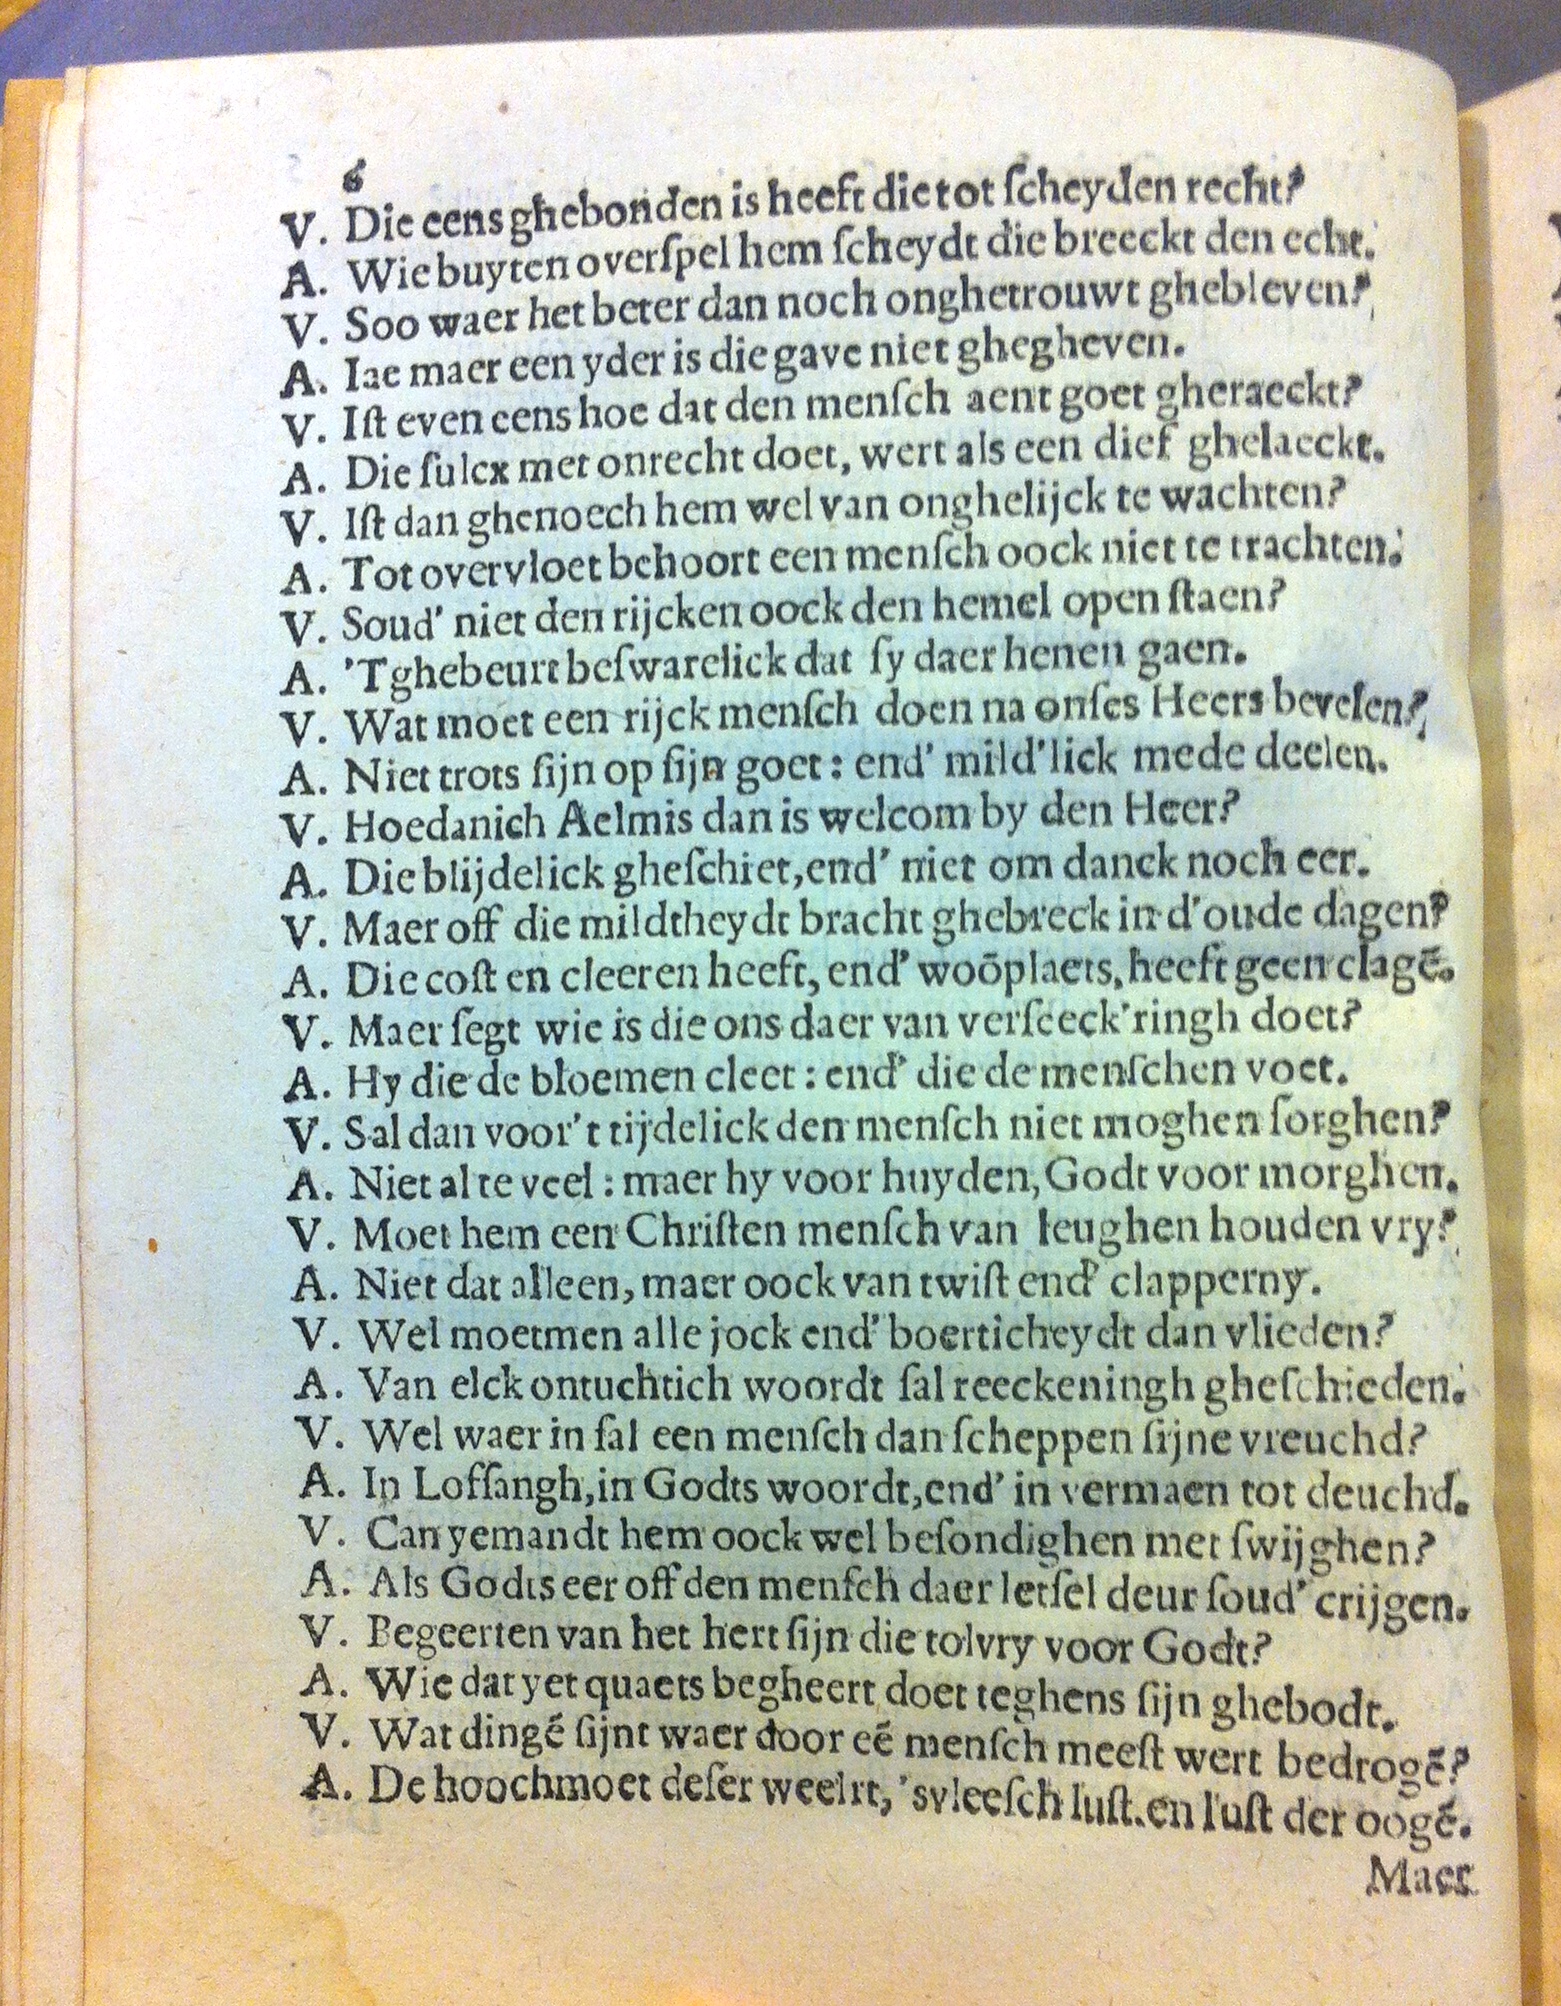 6
V. Die eens ghebonden is heeft die tot ſcheyden recht?
A. Wie buyten overſpel hem ſcheydt die breeckt den echt.
V. Soo waer het beter dan noch onghetrouwt ghebleven?
A. Iae maer een yder is die gave niet ghegheven.
V. Iſt even eens hoe dat den menſch aent goet gheraeckt?
A. Die ſulcx met onrecht doet, wert als een dief ghelaeckt.
V. Iſt dan ghenoech hem wel van onghelijck te wachten?
A. Tot overvloet behoort een menſch oock niet te trachten.
V. Soud' niet den rijcken oock den hemel open ſtaen?
A. 'Tghebeurt beſwarelick dat ſy daer henen gaen.
V. Wat moet een rijck menſch doen na onſes Heers bevelen?
A. Niet trots ſijn op ſijn goet: end' mild'lick mede deelen.
V. Hoedanich Aelmis dan is welcom by den Heer?
A. Die blijdelick gheſchiet, end' niet om danck noch eer.
V. Maer off die mildtheydt bracht ghebreck in d'oude dagen?
A. Die coſt en cleeren heeft, end' woōplaets, heeft geen clagē.
V. Maer ſegt wie is die ons daer van verſeeck'ringh doet?
A. Hy die de bloemen cleet: end' die de menſchen voet.
V. Sal dan voor't tijdelick den menſch niet moghen ſorghen?
A. Niet al te veel: maer hy voor huyden, Godt voor morghen.
V. Moet hem een Chriſten menſch van leughen houden vry?
A. Niet dat alleen, maer oock van twiſt end' clapperny.
V. Wel moetmen alle jock end' boerticheydt dan vlieden?
A. Van elck ontuchtich woordt ſal reeckeningh gheſchieden.
V. Wel waer in ſal een menſch dan ſcheppen ſijne vreuchd?
A. In Lofſangh, in Godts woordt, end' in vermaen tot deuchd.
V. Can yemandt hem oock wel beſondighen met ſwijghen?
A. Als Godts eer off den menſch daer letſel deur ſoud' crijgen.
V. Begeerten van het hert ſijn die tolvry voor Godt?
A. Wie dat yet quaets begheert doet teghens ſijn ghebodt.
V. Wat dingē ſijnt waer door eē menſch meeſt wert bedrogē?
A. De hoochmoet deſer weelrt, 'svleeſch luſt. en luſt der oogē.
Maer